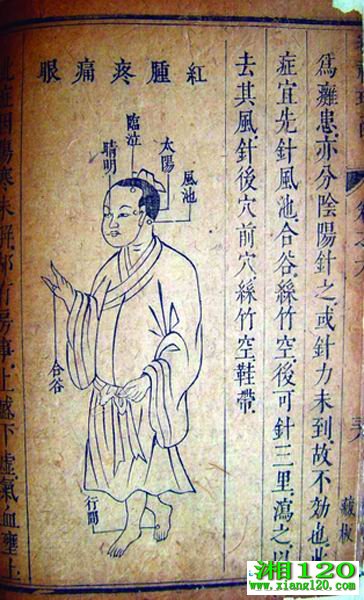 藏板
為難患,亦分陰陽針之,或針力未到,故不効也,此
症宜先針風池、合谷、絲竹空,後可針三里,瀉之以
去其風,針後穴前穴、絲竹空、鞋帶
紅腫疼痛眼
風池
太陽
臨泣
睛明
合谷
行間
此症因傷寒未解却行房事,上盛下虛,氣血壅上
湘120
www.xiang120.com